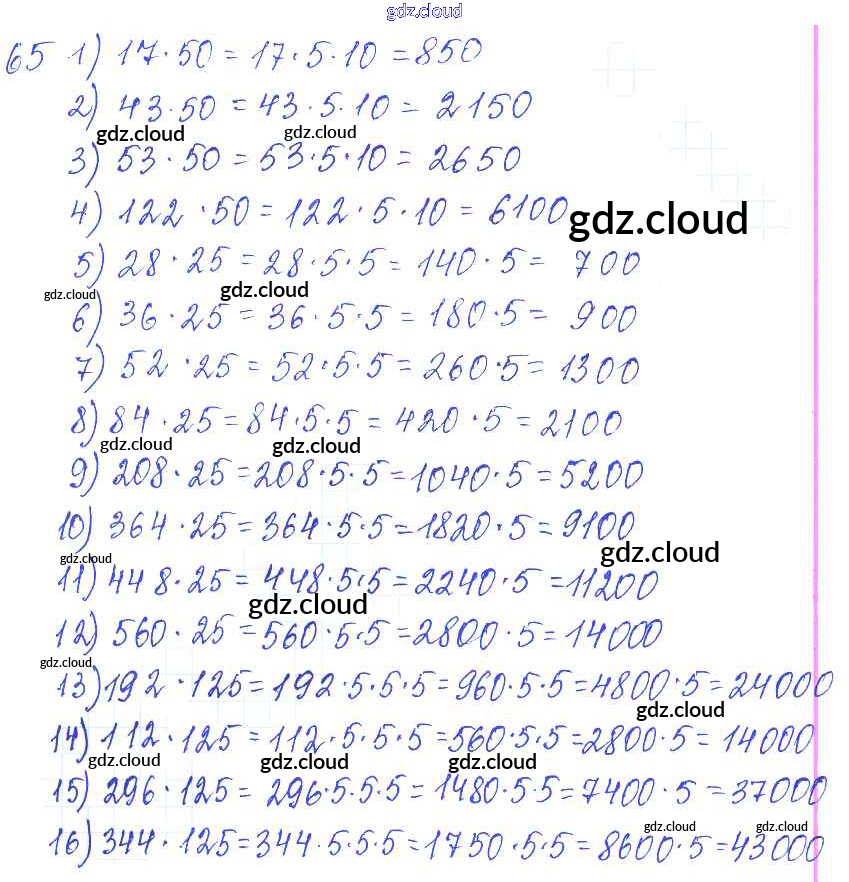 gdz.cloud
65 1) 17·50 = 17·5·10 = 850
2) 43·50 = 43·5·10 = 2150
gdz.cloud gdz.cloud
3) 53·50 = 53·5·10 = 2650
4) 122·50 = 122·5·10 = 6100
gdz.cloud
5) 28·25 = 28·5·5 = 140·5 = 700
gdz.cloud gdz.cloud
6) 36·25 = 36·5·5 = 180·5 = 900
7) 52·25 = 52·5·5 = 260·5 = 1300
8) 84·25 = 84·5·5 = 420·5 = 2100
gdz.cloud gdz.cloud
9) 208·25 = 208·5·5 = 1040·5 = 5200
10) 364·25 = 364·5·5 = 1820·5 = 9100
gdz.cloud gdz.cloud
11) 448·25 = 448·5·5 = 2240·5 = 11200
gdz.cloud
12) 560·25 = 560·5·5 = 2800·5 = 14000
gdz.cloud
13) 192·125 = 192·5·5·5 = 960·5·5 = 4800·5 = 24000
gdz.cloud
14) 112·125 = 112·5·5·5 = 560·5·5 = 2800·5 = 14000
gdz.cloud gdz.cloud gdz.cloud
15) 296·125 = 296·5·5·5 = 1480·5·5 = 7400·5 = 37000
gdz.cloud gdz.cloud
16) 344·125 = 344·5·5·5 = 1750·5·5 = 8600·5 = 43000